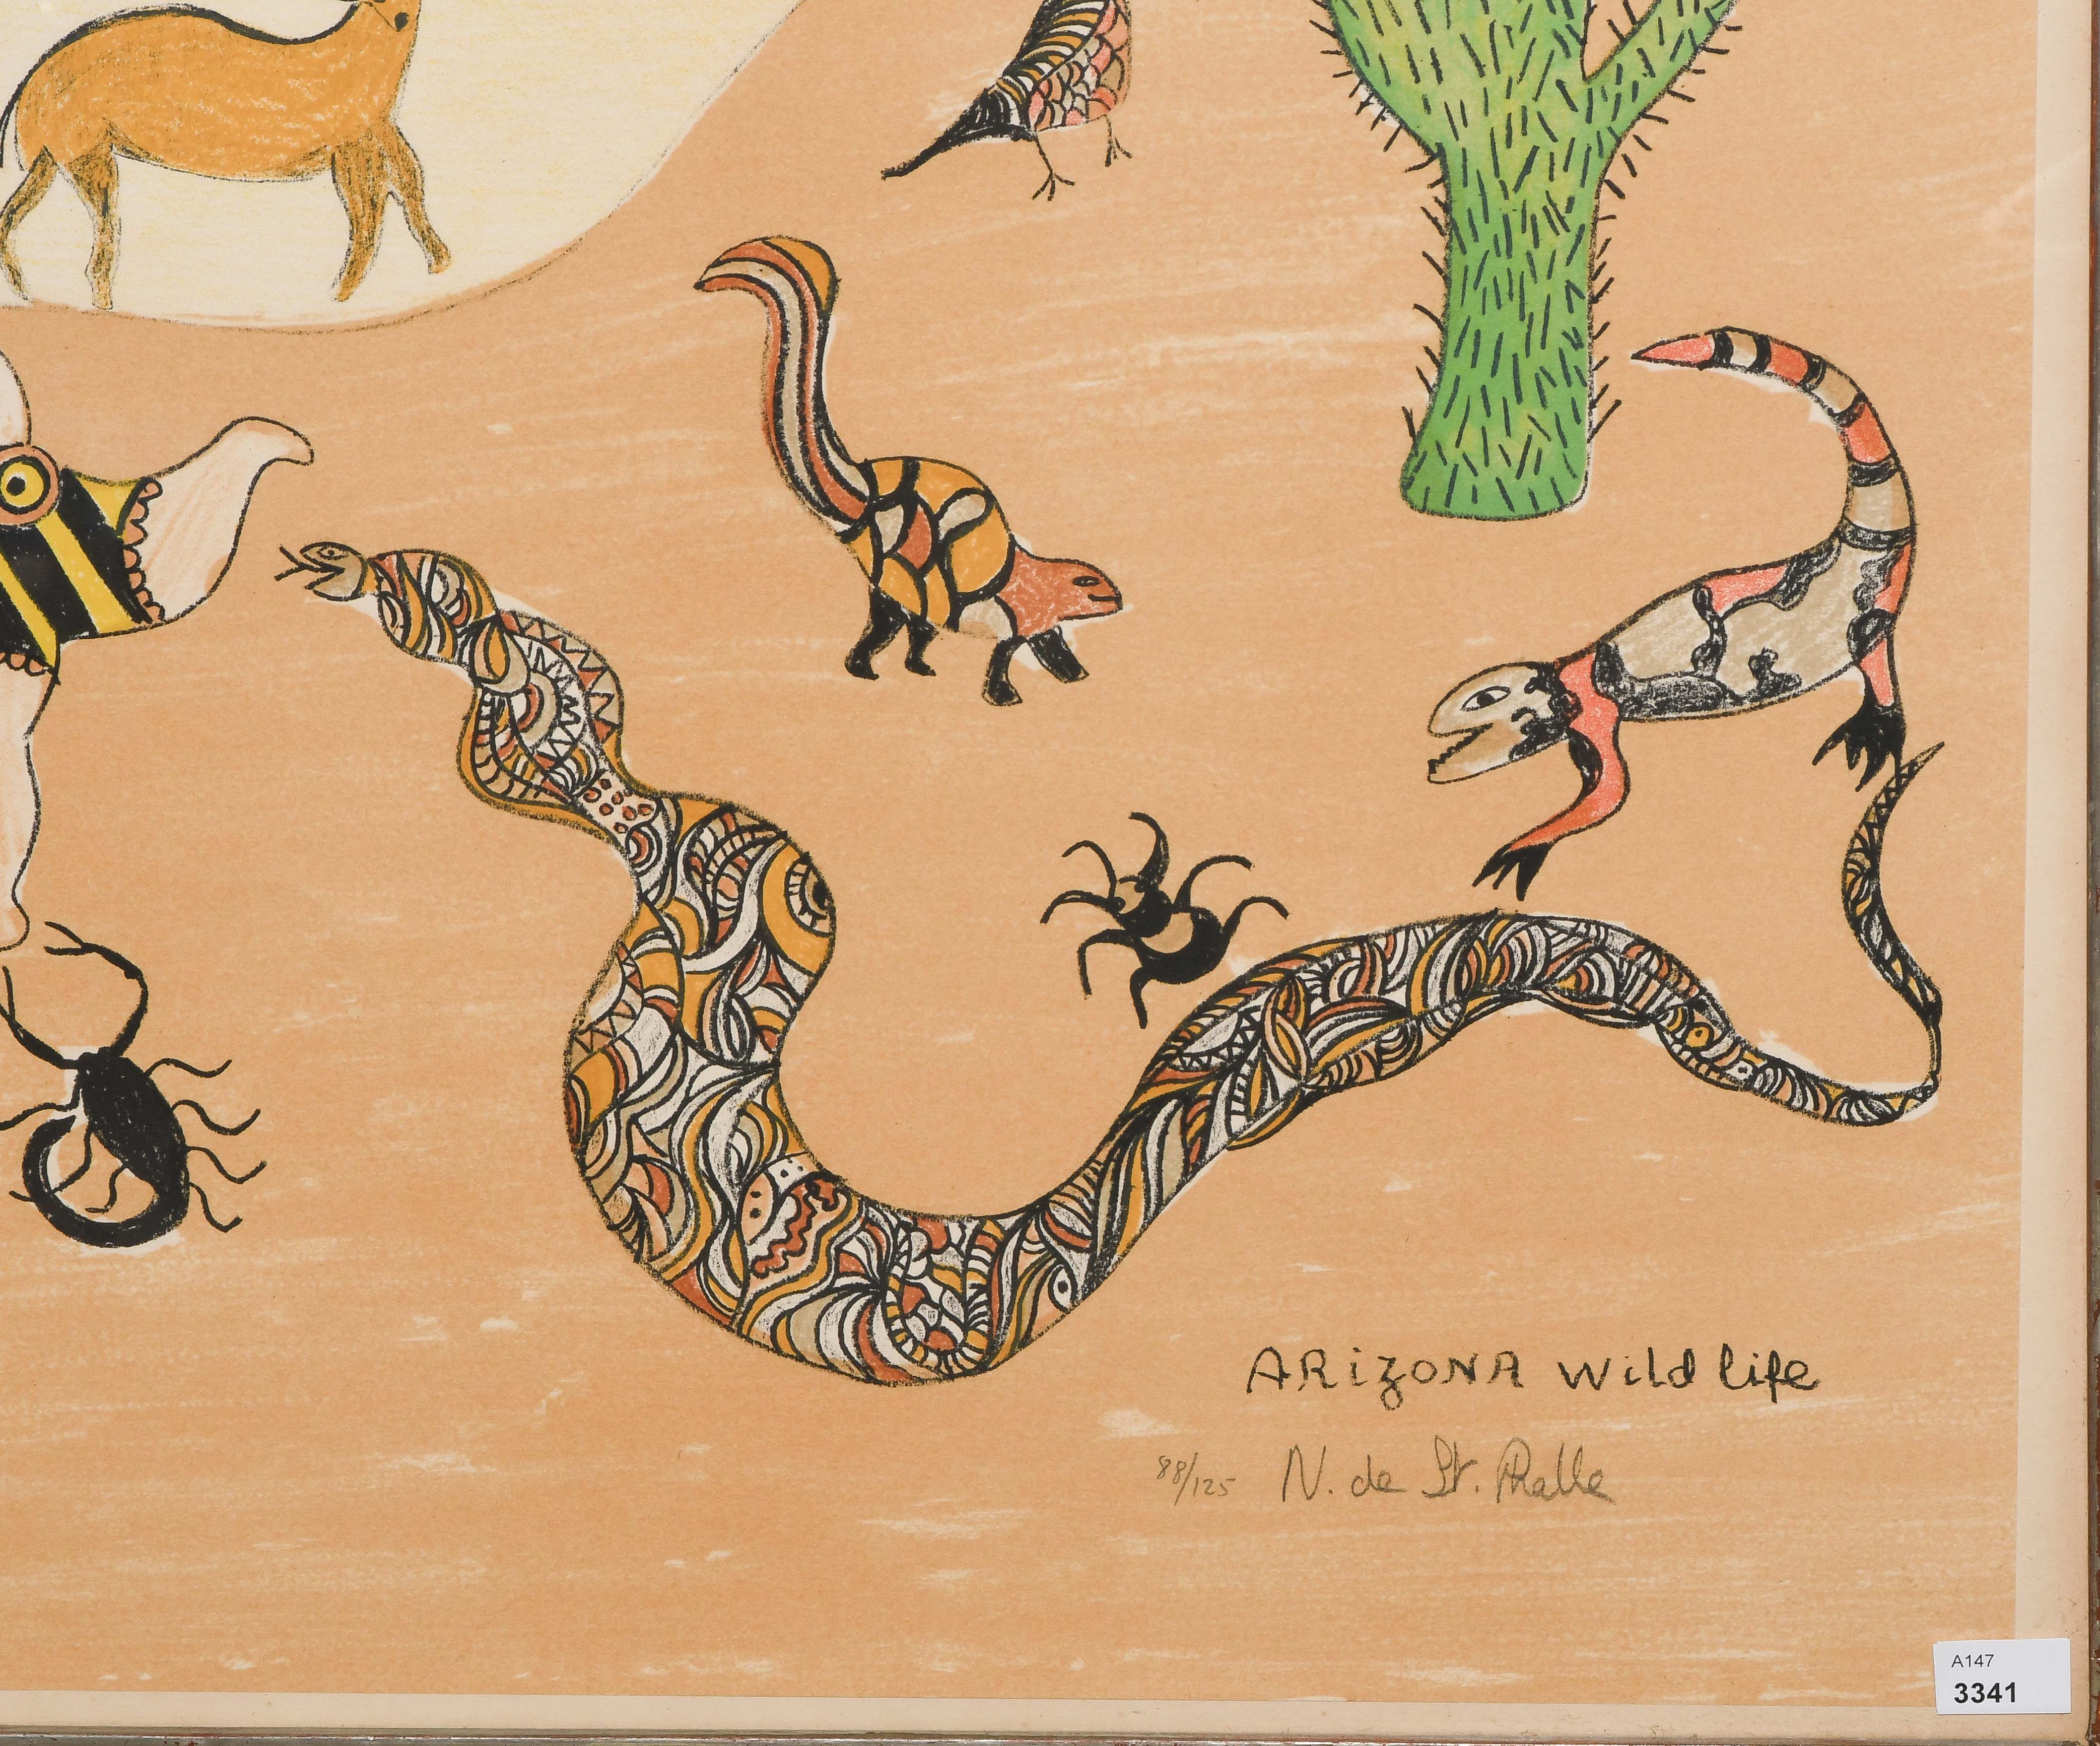 ARizONA wild life
88/125 N. de St. Phalle
A147
3341